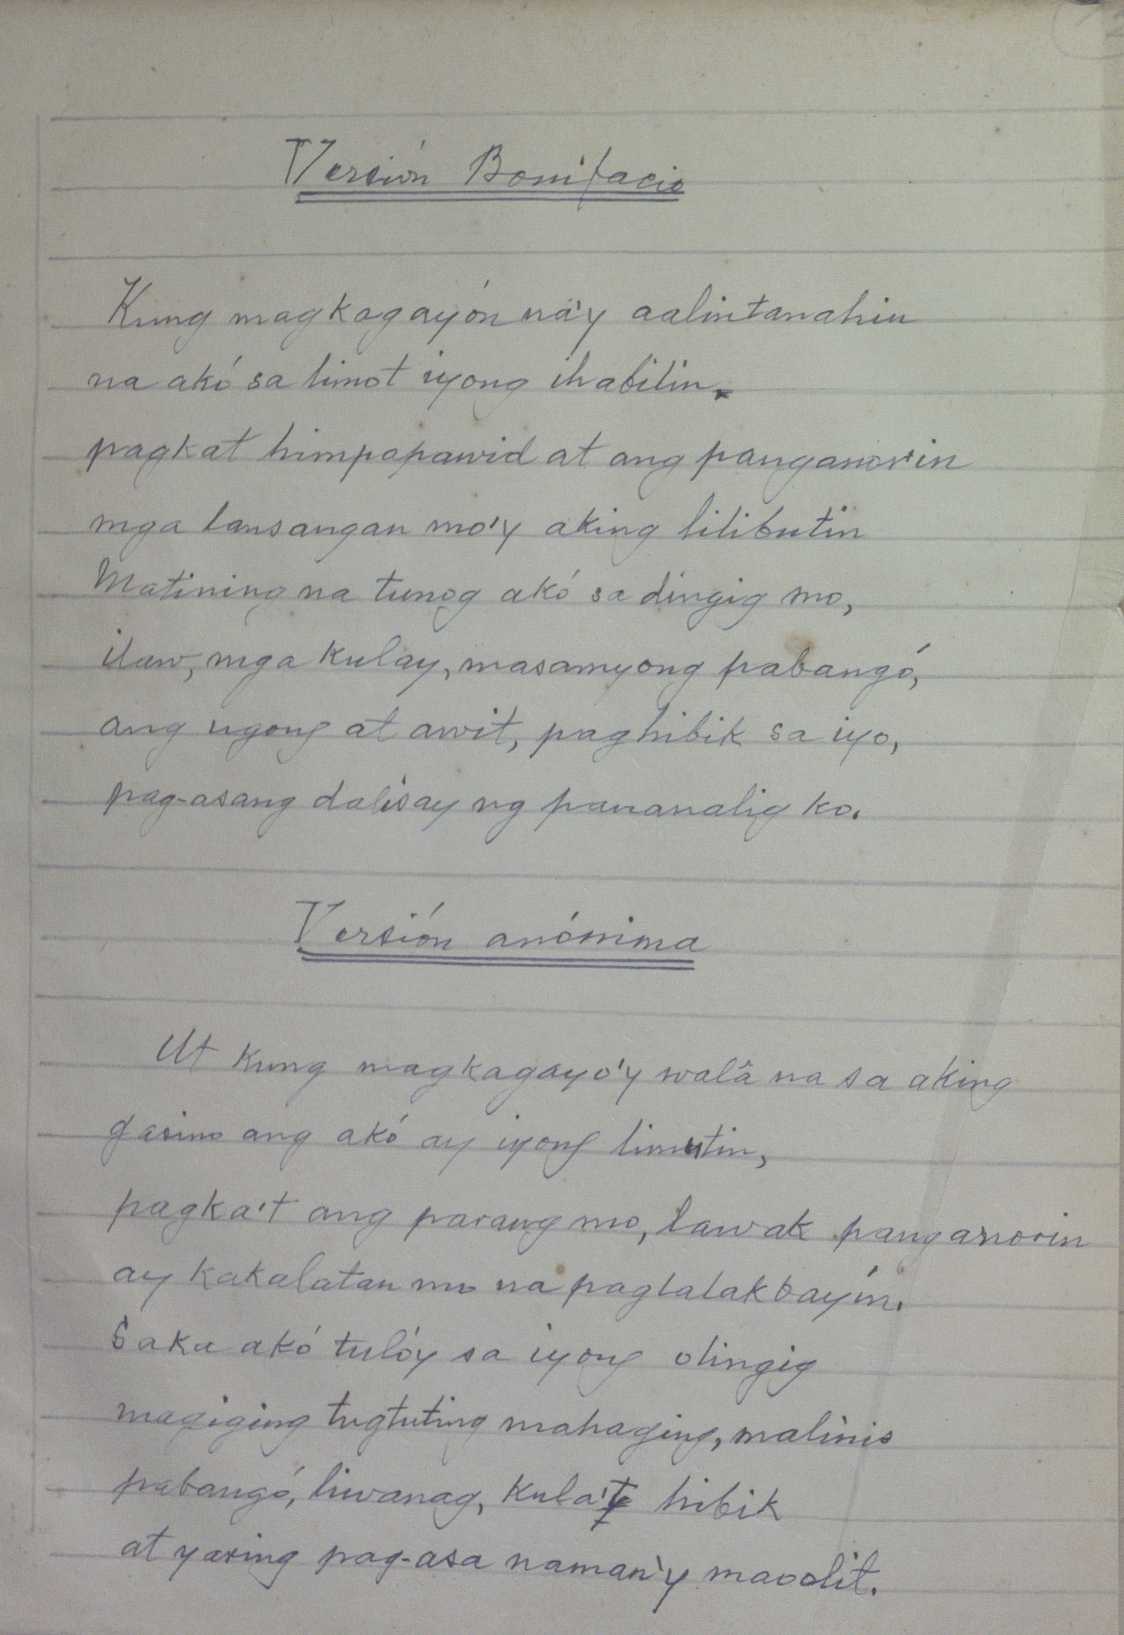 Versión Bonifacio
Kung magkagayón na'y aalintanahin
na akó sa limot iyong ihabilin.
pagkat himpapawid at ang panganorin
mga lansangan mo'y aking lilibutin
Matining na tunog akó sa dingig mo,
ilaw, mga kulay, masamyong pabangó,
ang ugong at awit, paghibik sa iyo,
pag-asang dalisay ng pananalig ko.
Versión anónima
At kung magkagayo'y walâ na sa aking
gasino ang akó ay iyong limutin,
pagka't ang parang mo, lawak panganorin
ay kakalatan mo na paglalakbayín.
Saka akó tulóy sa iyong dingig
magiging tugtuting mahaging, malinis
pabangó, liwanag, kula't hibik
at yaring pag-asa naman'y maoolit.